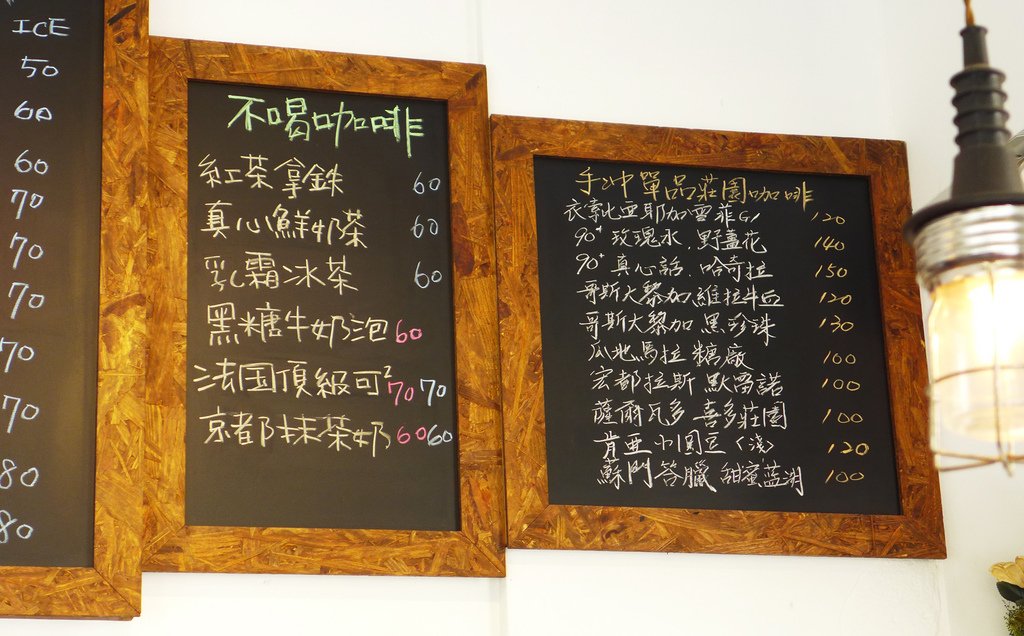 ICE
50
60
60
70
70
70
70
70
80
80
不喝咖啡
紅茶拿鉄 60
真心鮮奶茶 60
乳霜冰茶 60
黑糖牛奶泡 60
法国頂級可² 70 70
京都抹茶奶 60 60
手冲單品莊園咖啡
衣索比亚耶加雪菲G1 120
90⁺ 玫瑰水.野薑花 140
90⁺ 真心話.哈奇拉 150
哥斯大黎加維拉 120
哥斯大黎加.黑珍珠 130
瓜地馬拉 糖廠 100
宏都拉斯 默雷諾 100
薩爾瓦多 喜多莊園 100
肯亚 中围豆(淺) 120
蘇門答臘 甜蜜蓝湖 100